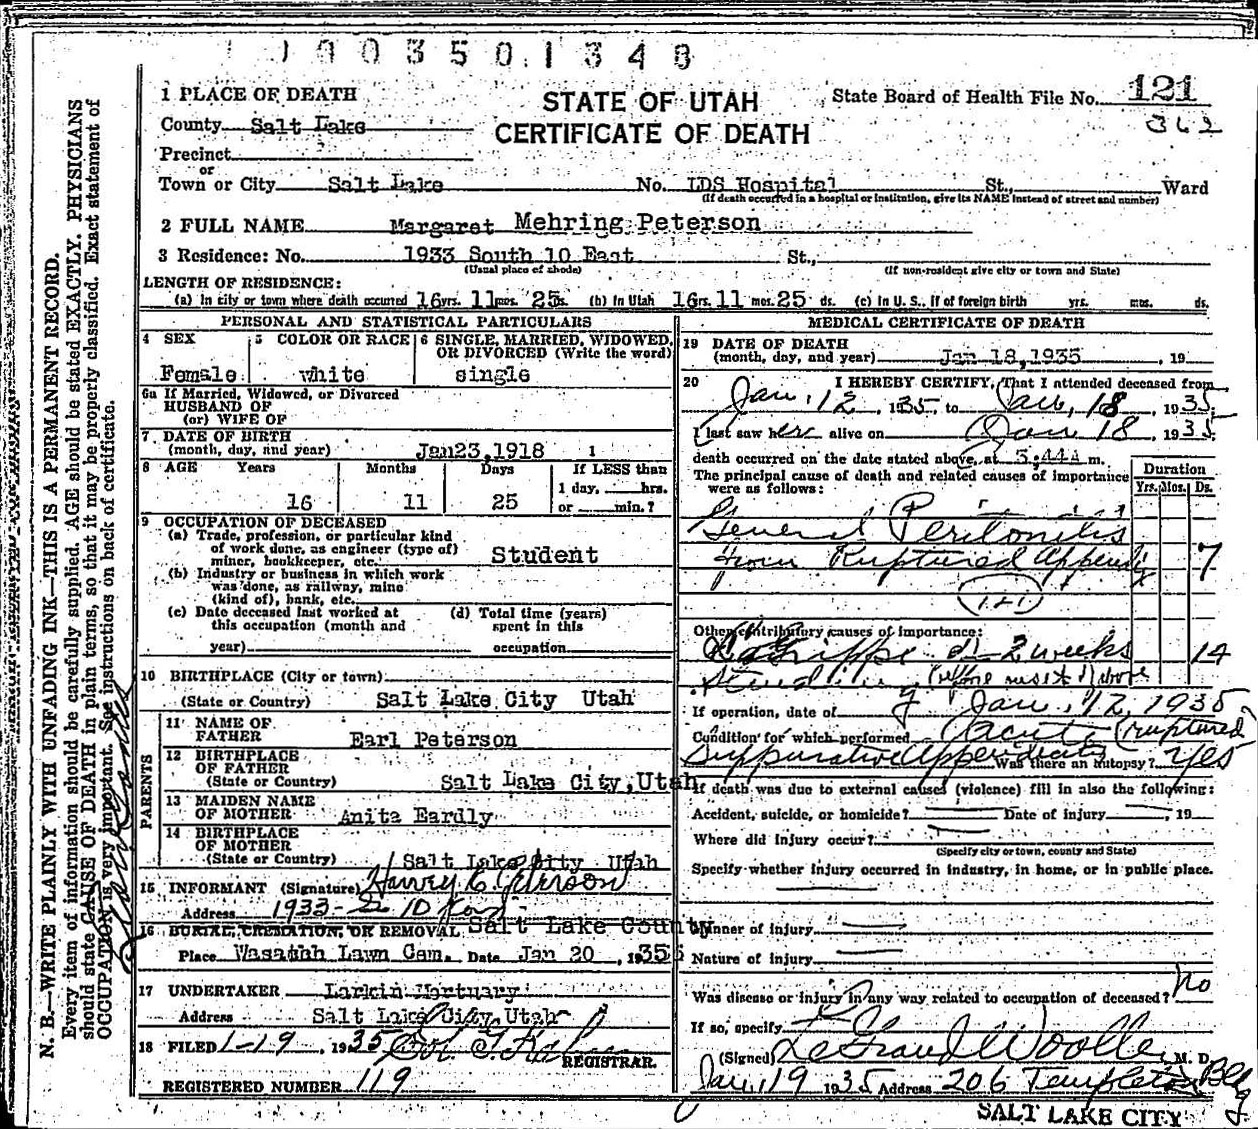 1003501348
1 PLACE OF DEATH
STATE OF UTAH
CERTIFICATE OF DEATH
State Board of Health File No. 121
362
County Salt Lake
Precinct
or
Town or City Salt Lake No. LDS Hospital St., Ward
(If death occurred in a hospital or institution, give its NAME instead of street and number)
2 FULL NAME Margaret Mehring Peterson
3 Residence: No. 1933 South 10 East St.,
(Usual place of abode) (If non-resident give city or town and State)
LENGTH OF RESIDENCE:
(a) In city or town where death occurred 16 yrs. 11 mos. 25 ds. (b) In Utah 16 rs. 11 mos. 25 ds. (c) In U. S., if of foreign birth yrs. mos. ds.
PERSONAL AND STATISTICAL PARTICULARS
4 SEX 5 COLOR OR RACE 6 SINGLE, MARRIED, WIDOWED, OR DIVORCED (Write the word)
Female white single
6a If Married, Widowed, or Divorced
HUSBAND OF
(or) WIFE OF
7 DATE OF BIRTH
(month, day, and year) Jan 23, 1918 1
8 AGE Years Months Days If LESS than
1 day, hrs.
16 11 25 or min.?
9 OCCUPATION OF DECEASED
(a) Trade, profession, or particular kind
of work done, as engineer (type of)
miner, bookkeeper, etc. Student
(b) Industry or business in which work
was done, as railway, mine
(kind of), bank, etc.
(c) Date deceased last worked at (d) Total time (years)
this occupation (month and spent in this
year) occupation
10 BIRTHPLACE (City or town)
(State or Country) Salt Lake City Utah
PARENTS
11 NAME OF
FATHER Earl Peterson
12 BIRTHPLACE
OF FATHER
(State or Country) Salt Lake City, Utah
13 MAIDEN NAME
OF MOTHER Anita Eardly
14 BIRTHPLACE
OF MOTHER
(State or Country) Salt Lake City Utah
15 INFORMANT (Signature) Harvey C. Peterson
Address 1933 - So 10
16 BURIAL, CREMATION, OR REMOVAL Salt Lake County
Place Wasathh Lawn Cem. Date Jan 20, 1935
17 UNDERTAKER Larkin Mortuary
Address Salt Lake City, Utah
18 FILED 1-19, 1935
REGISTRAR.
REGISTERED NUMBER 119
MEDICAL CERTIFICATE OF DEATH
19 DATE OF DEATH
(month, day, and year) Jan 18, 1935, 19
20 I HEREBY CERTIFY, That I attended deceased from
Jan. 12, 1935, to Jan. 18, 1935.
I last saw her alive on Jan 18, 1935.
death occurred on the date stated above, at 3:44A m.
The principal cause of death and related causes of importance
were as follows:
Duration
Yrs. Mos. Ds.
General Peritonitis
from Ruptured Appendix 7
121
Other contributory causes of importance:
La Grippe 2 weeks 14
If operation, date of Jan. 12, 1935
Condition for which performed Acute (ruptured
Suppurative Appendicitis Was there an autopsy? Yes
If death was due to external causes (violence) fill in also the following:
Accident, suicide, or homicide? Date of injury, 19
Where did injury occur?
(Specify city or town, county and State)
Specify whether injury occurred in industry, in home, or in public place.
Manner of injury
Nature of injury
Was disease or injury in any way related to occupation of deceased? No
If so, specify
(Signed) LeGrand Woolley, M. D.
Jan. 19 1935 Address 206 Templeton Bldg
SALT LAKE CITY
N. B.—WRITE PLAINLY WITH UNFADING INK—THIS IS A PERMANENT RECORD.
Every item of information should be carefully supplied. AGE should be stated EXACTLY. PHYSICIANS
should state CAUSE OF DEATH in plain terms, so that it may be properly classified. Exact statement of
OCCUPATION is very important. See instructions on back of certificate.